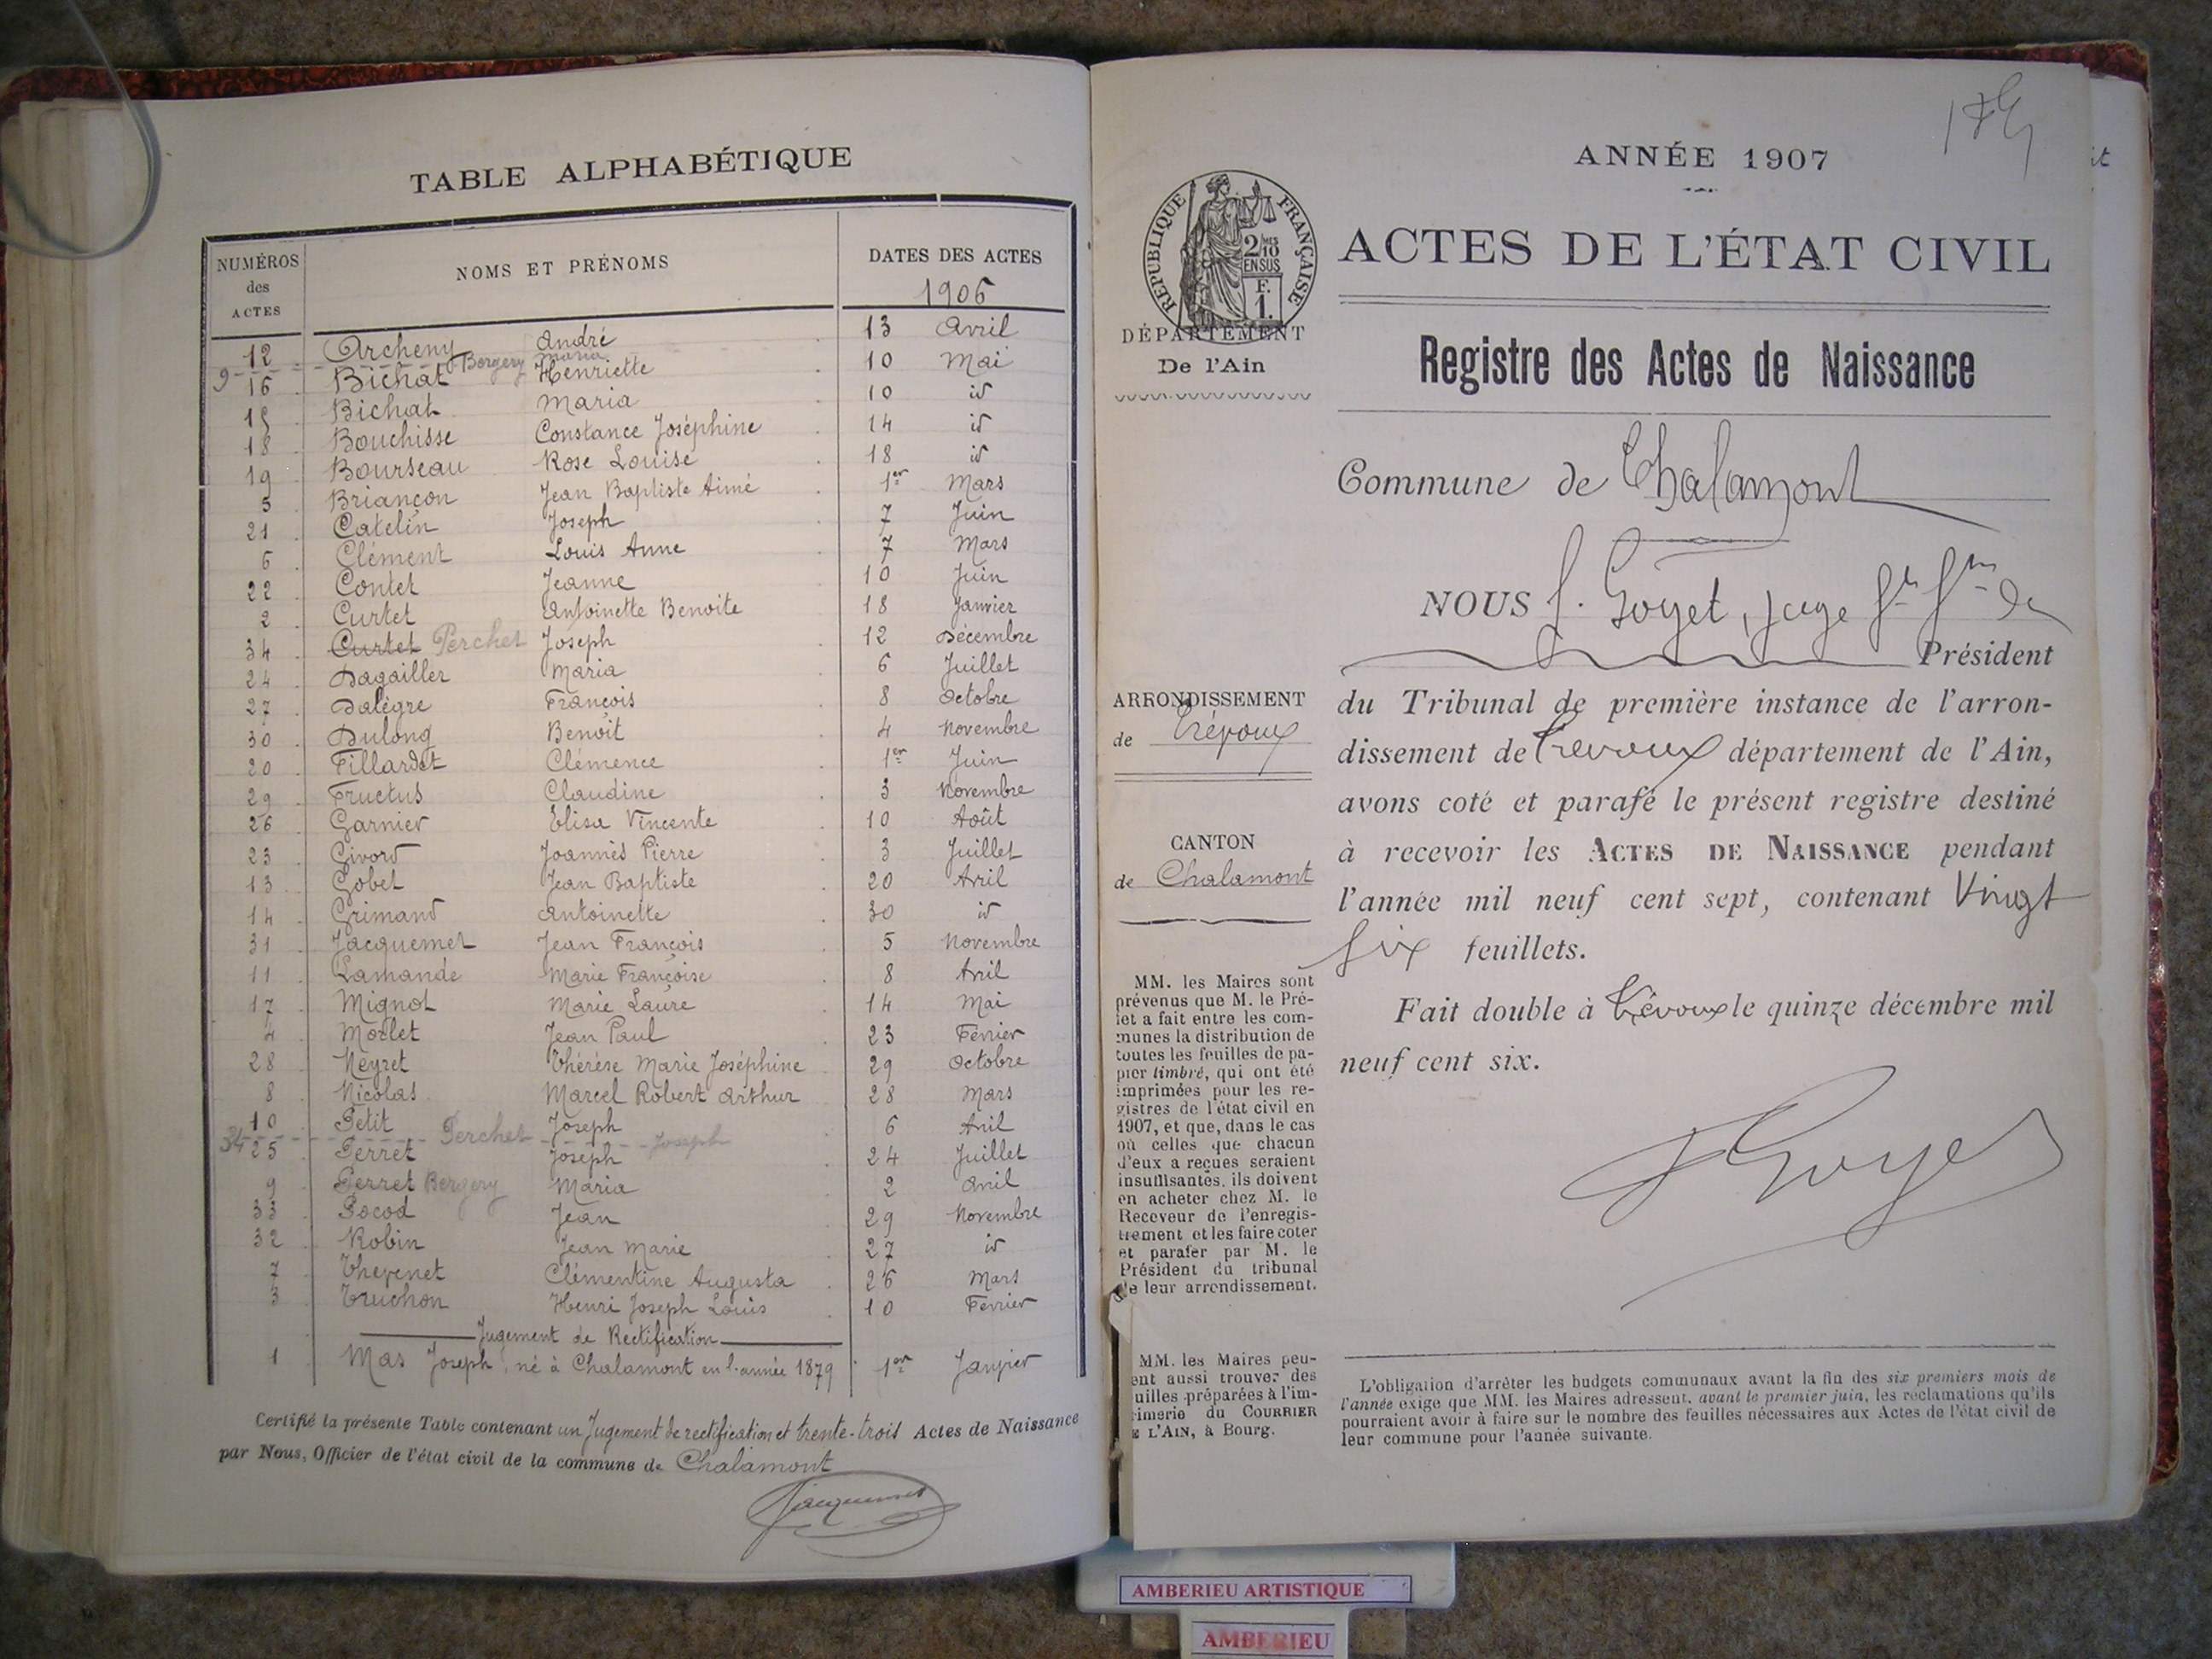 TABLE ALPHABÉTIQUE
NUMÉROS des ACTES NOMS ET PRÉNOMS DATES DES ACTES
1906
12 Archeny André 13 Avril
9 Bergery Maria
16 Bichat Henriette 10 Mai
15 Bichat Maria 10 id
18 Bouchisse Constance Joséphine 14 id
19 Bourseau Rose Louise 18 id
5 Briançon Jean Baptiste Aimé 1er Mars
21 Catelin Joseph 7 Juin
6 Clément Louis Anne 7 Mars
22 Contet Jeanne 10 Juin
2 Curtet Antoinette Benoite 18 Janvier
34 Curtet Perchet Joseph 12 Décembre
24 Dagailler Maria 6 Juillet
27 Dalègre François 8 Octobre
30 Dulong Benoit 4 Novembre
20 Fillardet Clémence 1er Juin
29 Fructus Claudine 3 Novembre
26 Garnier Elisa Vincente 10 Août
23 Givord Joannès Pierre 3 Juillet
13 Gobet Jean Baptiste 20 Avril
14 Grimand Antoinette 30 id
31 Jacquemet Jean François 5 Novembre
11 Lamande Marie Françoise 8 Avril
17 Mignot Marie Laure 14 Mai
4 Morlet Jean Paul 23 Février
28 Neyret Thérèse Marie Joséphine 29 Octobre
8 Nicolas Marcel Robert Arthur 28 Mars
10 Petit Joseph 6 Avril
34 Perchet Joseph
25 Perret Joseph 24 Juillet
9 Perret Bergery Maria 2 Avril
33 Pocod Jean 29 Novembre
32 Robin Jean Marie 27 id
7 Thevenet Clémentine Augusta 26 Mars
3 Truchon Henri Joseph Louis 10 Février
Jugement de Rectification
1 Mas Joseph, né à Chalamont en l'année 1879 1er Janvier
Certifié la présente Table contenant un Jugement de rectification et trente-trois Actes de Naissance
par Nous, Officier de l'état civil de la commune de Chalamont
Jacquemet
ANNÉE 1907
RÉPUBLIQUE FRANÇAISE
2/10 MES
EN SUS
F.
1.
DÉPARTEMENT
De l'Ain
ACTES DE L'ÉTAT CIVIL
Registre des Actes de Naissance
Commune de Chalamont
NOUS Goyet, juge
Président
du Tribunal de première instance de l'arron-
dissement de Trévoux département de l'Ain,
avons coté et parafé le présent registre destiné
à recevoir les ACTES DE NAISSANCE pendant
l'année mil neuf cent sept, contenant Vingt
six feuillets.
Fait double à Trévoux le quinze décembre mil
neuf cent six.
Goyet
ARRONDISSEMENT
de Trévoux
CANTON
de Chalamont
MM. les Maires sont
prévenus que M. le Pré-
fet a fait entre les com-
munes la distribution de
toutes les feuilles de pa-
pier timbré, qui ont été
imprimées pour les re-
gistres de l'état civil en
1907, et que, dans le cas
où celles que chacun
d'eux a reçues seraient
insuffisantes, ils doivent
en acheter chez M. le
Receveur de l'enregis-
trement et les faire coter
et parafer par M. le
Président du tribunal
de leur arrondissement.
MM. les Maires peu-
ent aussi trouver des
uilles préparées à l'im-
rimerie du COURRIER
E L'AIN, à Bourg.
L'obligation d'arrêter les budgets communaux avant la fin des six premiers mois de
l'année exige que MM. les Maires adressent, avant le premier juin, les réclamations qu'ils
pourraient avoir à faire sur le nombre des feuilles nécessaires aux Actes de l'état civil de
leur commune pour l'année suivante.
AMBERIEU ARTISTIQUE
AMBERIEU